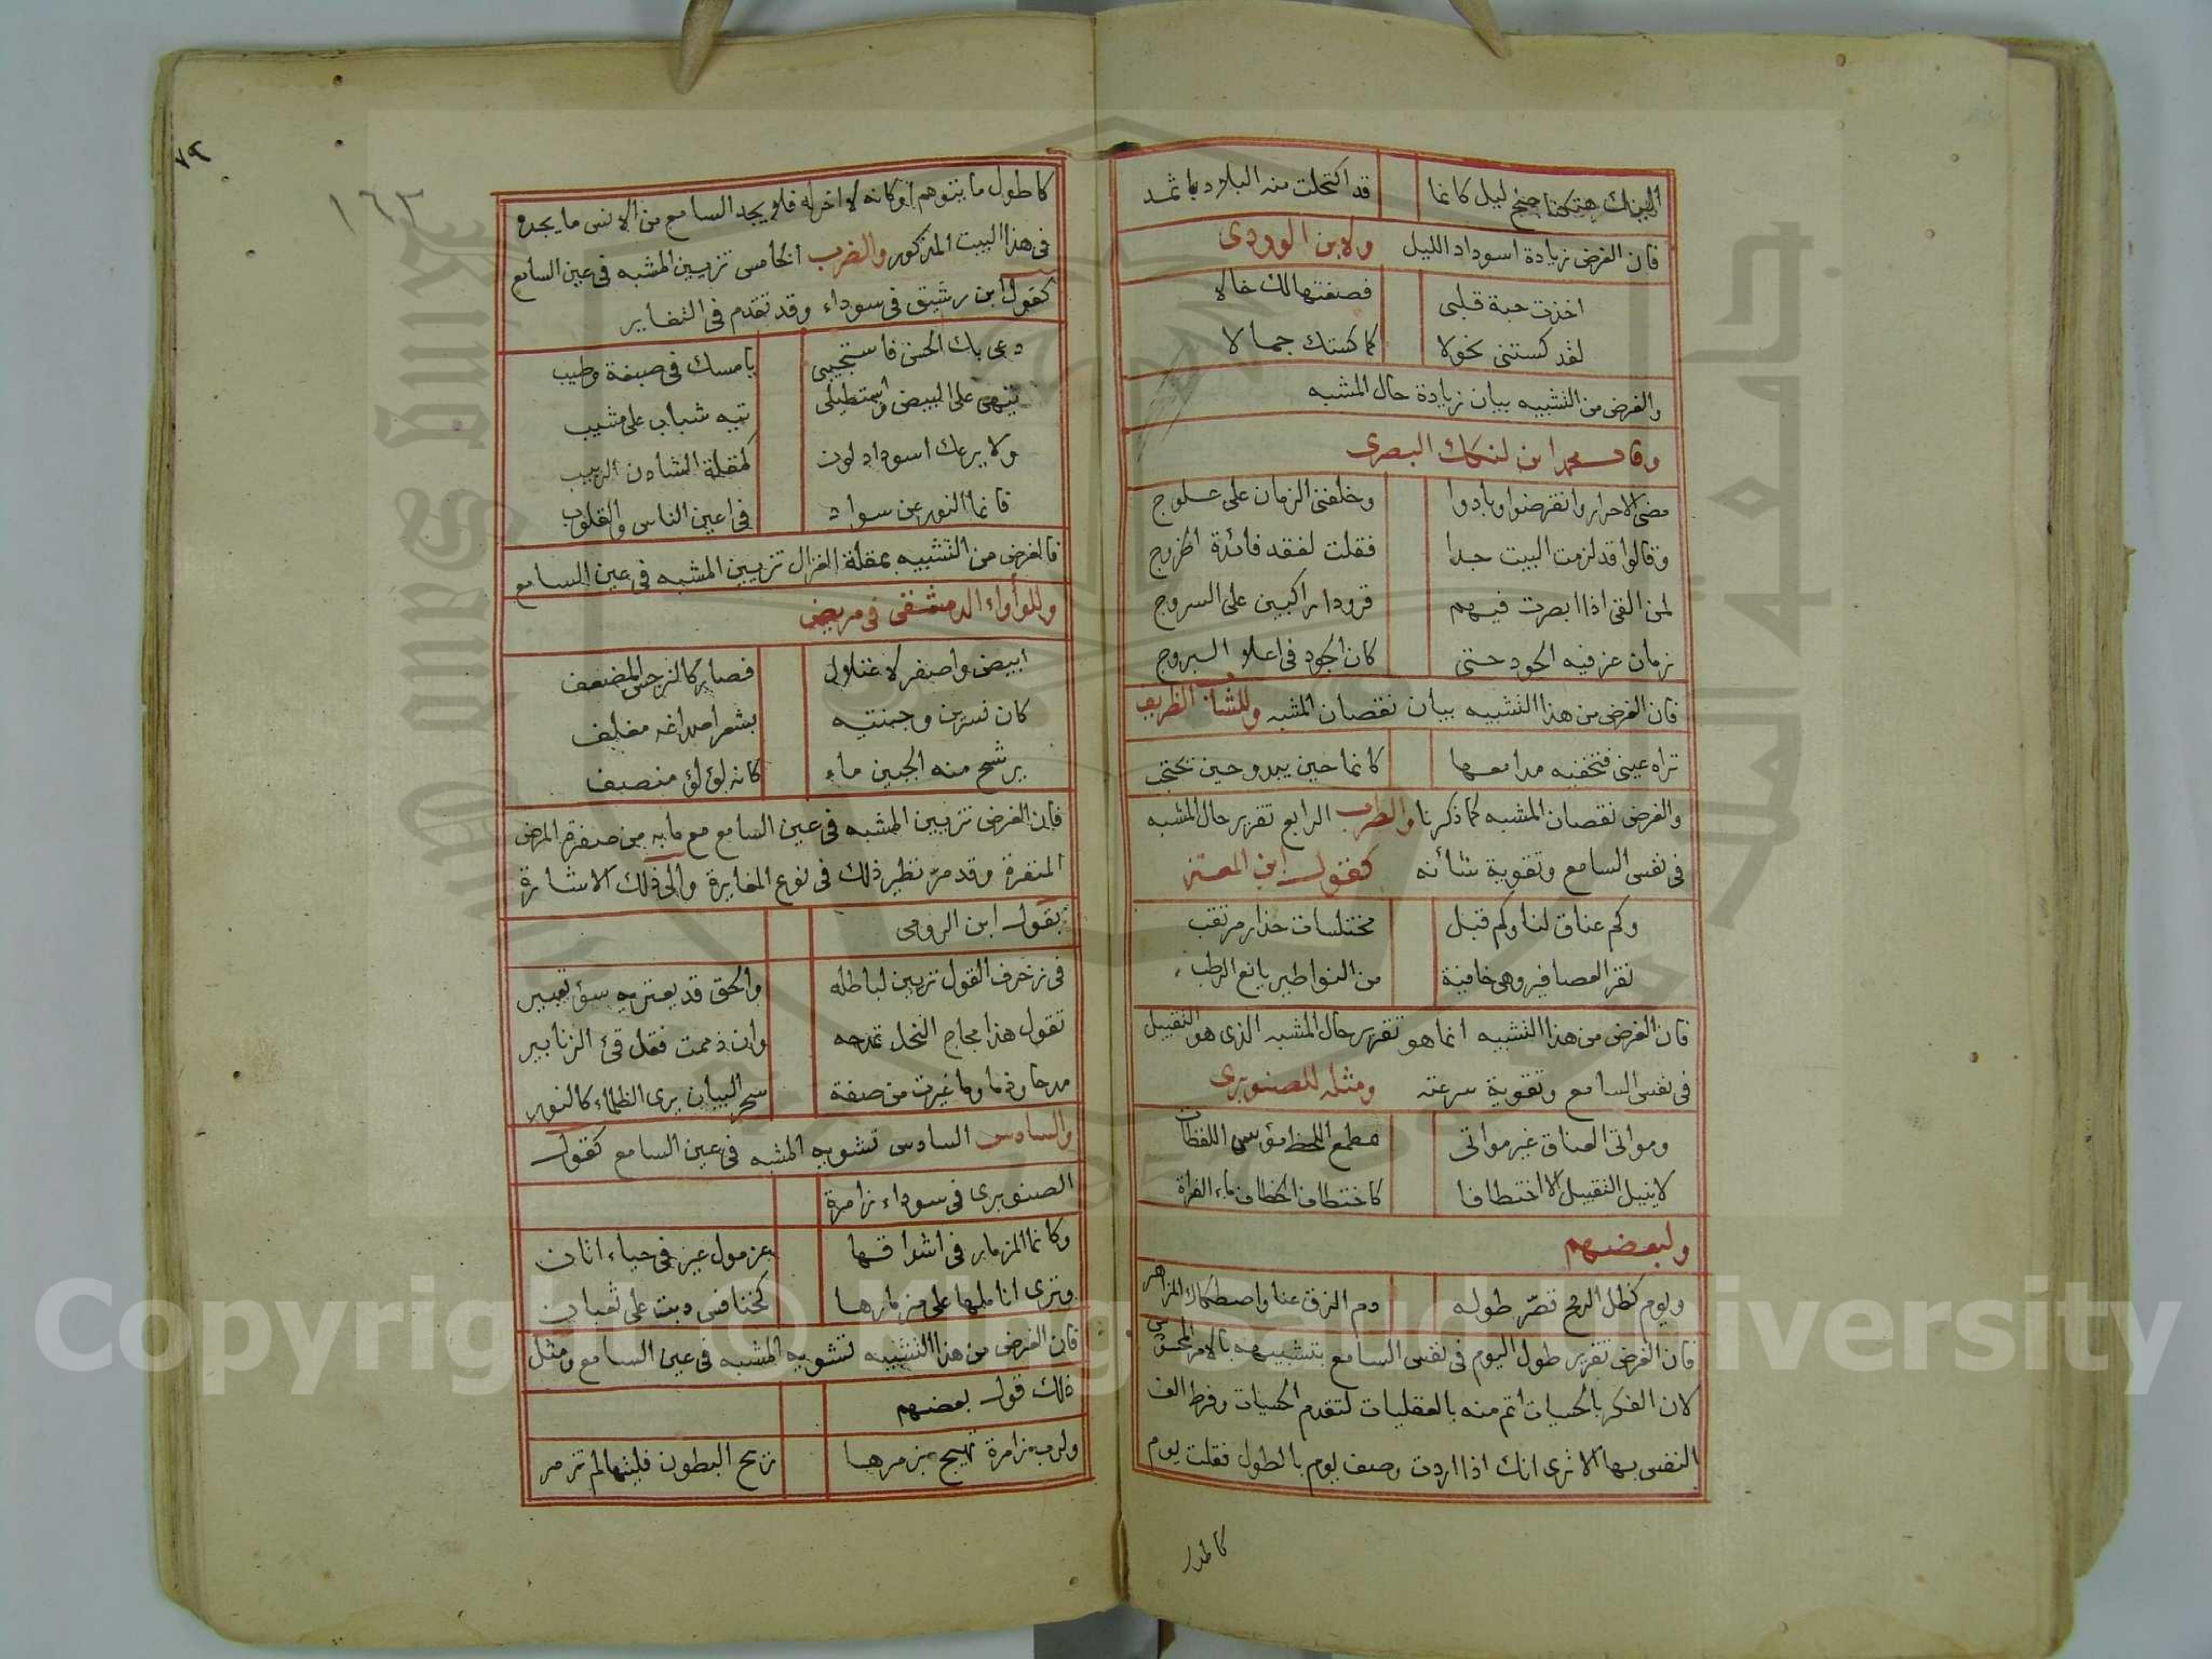 اليك هتكنا جنح ليل كانما قد اكتحلت منه البلاد باثمد
فان الغرض زيادة اسوداد الليل ولابن الوردى
اخذت حبة قلبى فصنعتها لك خالا
لقد كستنى نحولا كما كستك جمالا
والغرض من التشبيه بيان زيادة حال المشبه
وقال محمد ابن لنكك البصرى
مضى الاحرار وانقرضوا وبادوا وخلفنى الزمان على علوج
وقالوا قد لزمت البيت جدا فقلت لفقد فائدة الخروج
لمن القى اذا ابصرت فيهم قرودا راكبين على السروج
زمان عز فيه الجود حتى كان الجود فى اعلا البروج
فان الغرض من هذا التشبيه بيان نقصان المشبه وللشاب الظريف
تراه عينى فتخفيه مدامعها كانما حين يبدو حين يحتجب
والغرض نقصان المشبه كما ذكرنا والضرب الرابع تقرير حال المشبه
فى نفس السامع وتقوية شأنه كقول ابن المعتز
وكم عناق لنا وكم قبل مختلسات حذار مرتقب
نقر العصافير وهى خائفة من النواطير يانع الرطب
فان الغرض من هذا التشبيه انما هو تقرير حال المشبه الذى هو التقبيل
فى نفس السامع وتقوية سرعته ومثله للصنوبرى
ومواتى العناق غير مواتى مطمع اللحظ مؤيس اللفظات
لا ينيل التقبيل الا اختطافا كاختطاف الخطاف ماء الفراة
ولبعضهم
ويوم كظل الرمح قصّر طوله دم الزق عنا واصطكاك المزاهر
فان الغرض تقرير طول اليوم فى نفس السامع بتشبيهه بالامر المحسوس
لان الفكر بالحسيات اتم منه بالعقليات لتقدم الحسيات وفرط الف
النفس بها الا ترى انك اذا اردت وصف يوم بالطول فقلت يوم
كاطول
٧٩
١٦٣
كاطول ما يتوهم او كانه لا اخر له فلا يجد السامع من الانس ما يجده
فى هذا البيت المذكور والضرب الخامس تزيين المشبه فى عين السامع
كقول ابن رشيق فى سوداء وقد تقدم فى التغاير
دعى بك الحسن فاستجيبى يا مسك فى صبغة وطيب
تيهى على البيض واستطيلى تيه شباب على مشيب
ولا يرعك اسوداد لون كمقلة الشادن الربيب
فانما النور عن سواد فى اعين الناس والقلوب
فالغرض من التشبيه بمقلة الغزال تزيين المشبه فى عين السامع
وللوأواء الدمشقى فى مريض
ابيض واصفر لاعتلال فصار كالنرجس المضعف
كان نسرين وجنتيه بشعر اصداغه مغلف
يرشح منه الجبين ماء كانه لؤلؤ منصف
فان الغرض تزيين المشبه فى عين السامع مع ما به من صفرة المرض
المنفرة وقد مرّ نظير ذلك فى نوع المغايرة والى ذلك الاشارة
بقول ابن الرومى
فى زخرف القول تزيين لباطله والحق قد يعتريه سؤ تعبير
تقول هذا مجاج النحل تمدحه وان ذممت فقل قئ الزنابير
مدحا وذما وما غيرت من صفة سحر البيان يرى الظلماء كالنور
والسادس السادس تشويه المشبه فى عين السامع كقول
الصنوبرى فى سوداء زامرة
وكانما المزمار فى اشداقها غرمول عير فى حياء اتان
وترى اناملها على مزمارها كخنافس دبت على ثعبان
فان الغرض من هذا التشبيه تشويه المشبه فى عين السامع ومثل
ذلك قول بعضهم
ولرب زامرة تهيج بزمرها ريح البطون فليتها لم تزمر